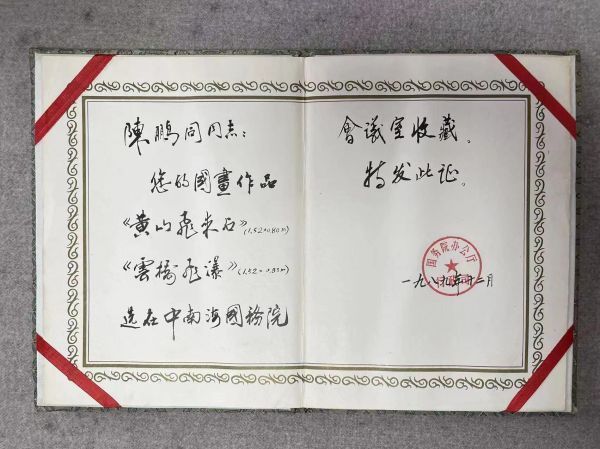 陳鵬同同志：
您的國畫作品
《黄山飛來石》(1.52×0.80m)
《雲樹飛瀑》(1.52×0.83m)
選在中南海國務院
會議室收藏。
特发此证。
国务院办公厅
一九八九年十二月